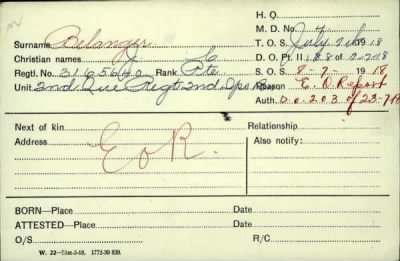 H. Q.
M. D. No. 4
Surname Belanger T. O. S. July 7th 1918
Christian names J. E. D. O. Pt. II 188 of 7-7-18
Regtl. No. Rank Pte S. O. S. 8-7- 1918
Unit 2nd Que Regt 2nd Dpo Bn Reason E. O. Report
Auth. D.O. 203 of 23-7-18
Next of kin Relationship
Address EoR. Also notify:
BORN—Place Date
ATTESTED—Place Date
O/S R/C
W. 22—75M-5-18. 1772-39 839.